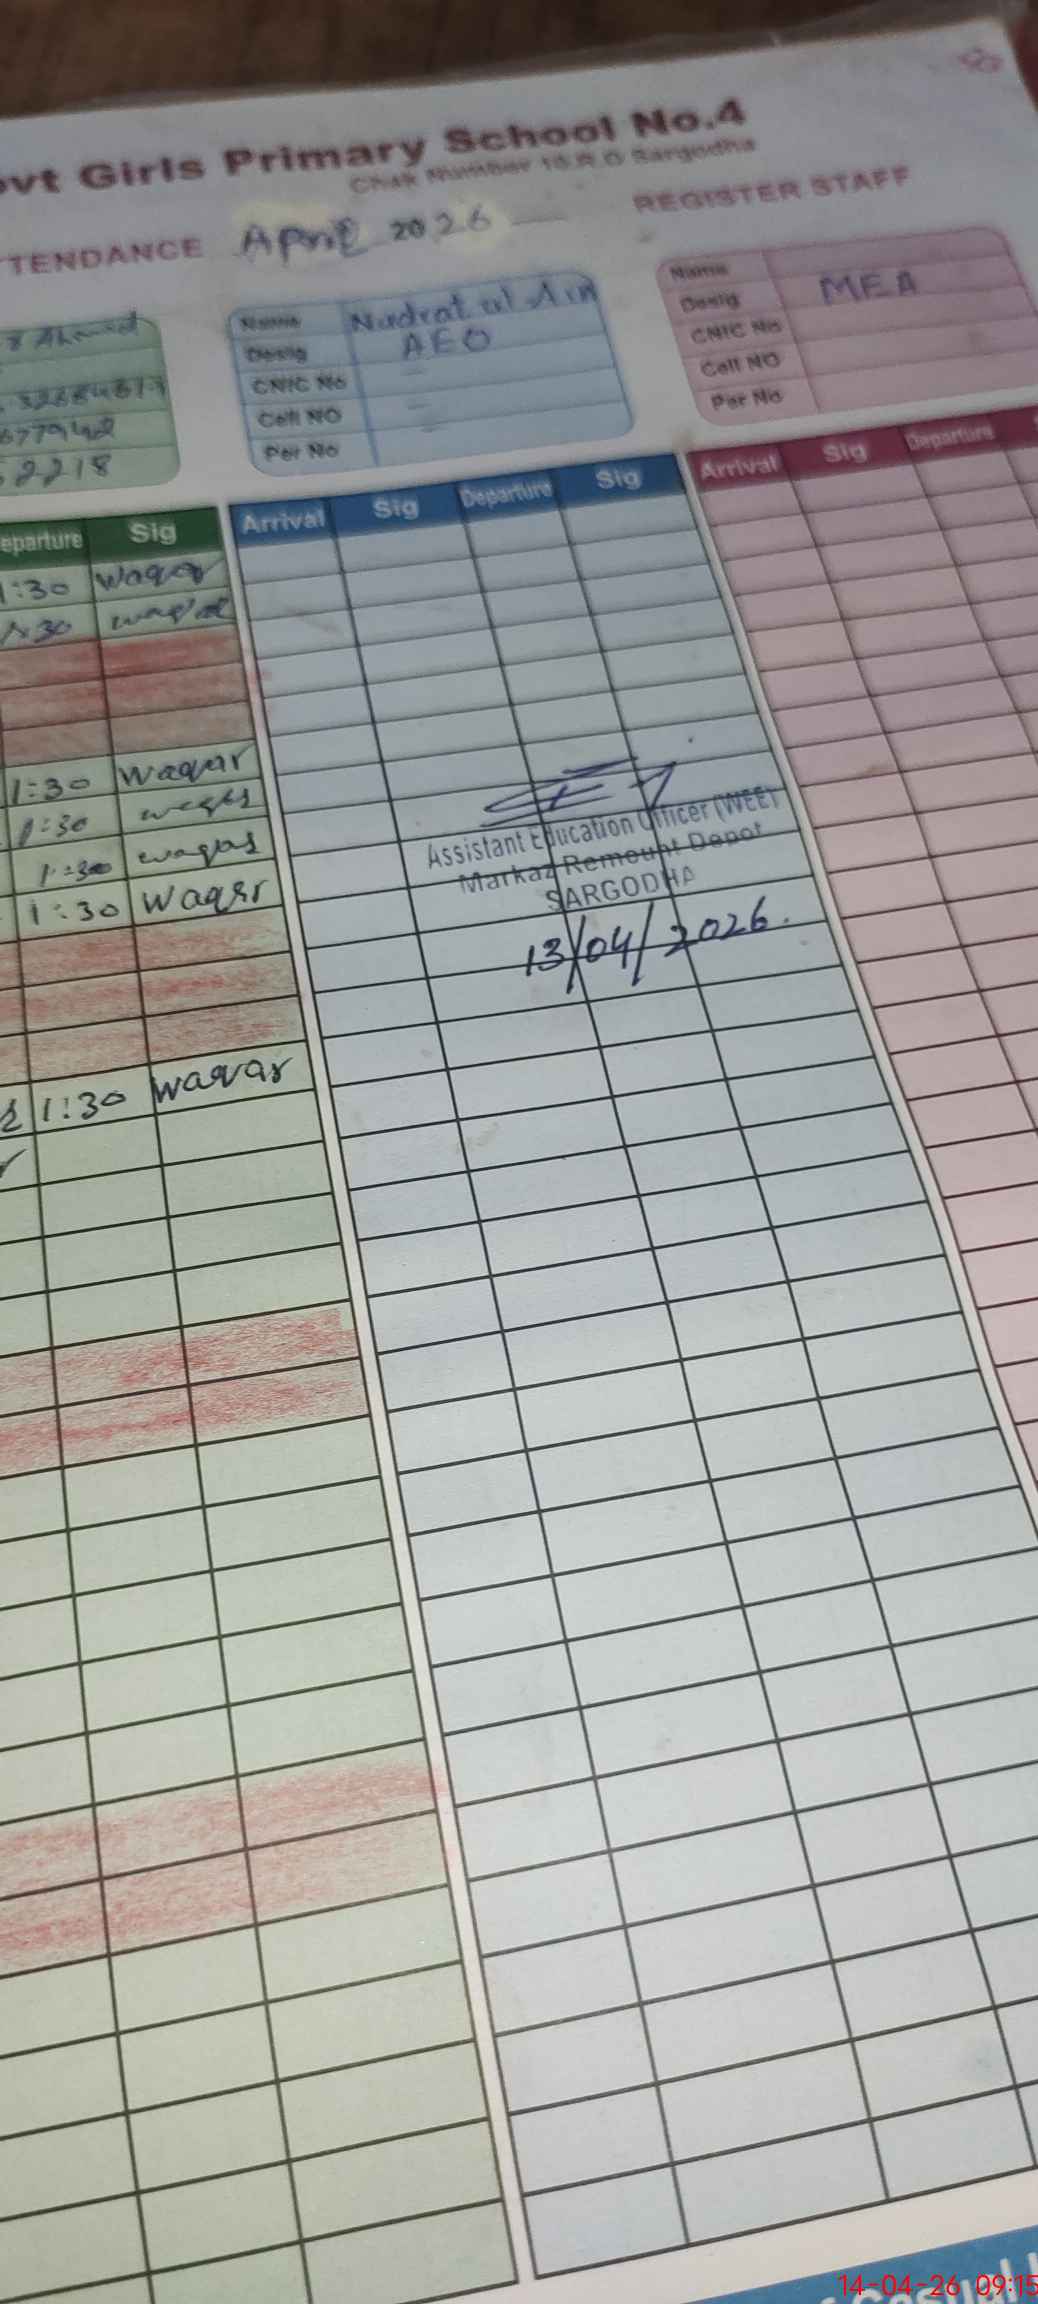 ovt Girls Primary School No.4
Chak Number 10.R.O Sargodha
TTENDANCE April 2026
REGISTER STAFF
Ahmad
2218
Name Nudrat ul Ain
Desig AEO
CNIC No
Cell NO
Per No
Name
Desig MEA
CNIC No
Cell NO
Per No
eparture Sig
Arrival Sig Departure Sig
Arrival Sig Departure
1:30 waqar
1:30 waqar
1:30 Waqar
1:30 waqas
1:30 waqas
1:30 Waqar
1:30 waqar
Assistant Education Officer (WEE)
Markaz Remount Depot
SARGODHA
13/04/2026.
14-04-26 09:15